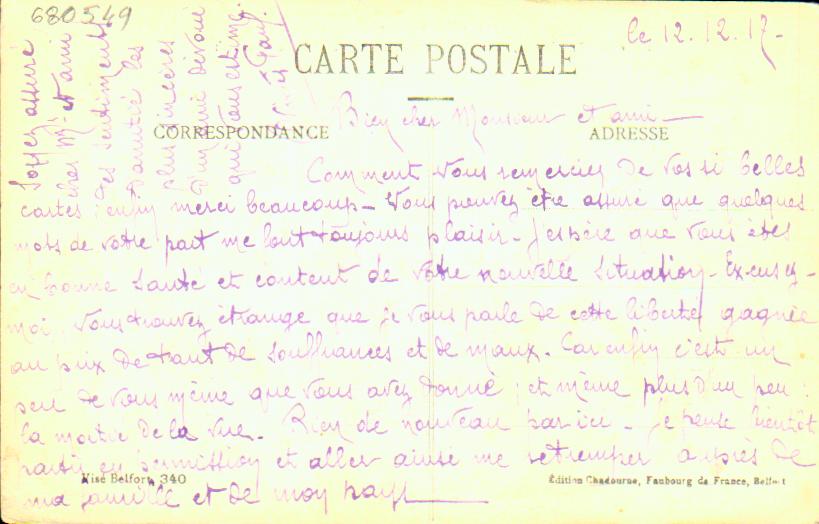 680549
le 12.12.17-
CARTE POSTALE
CORRESPONDANCE
ADRESSE
Bien cher Monsieur et ami-
Comment vous remercier de vos si belles
cartes ; enfin merci beaucoup- Vous pouvez être assuré que quelques
mots de votre part me font toujours plaisir- J'espère que vous êtes
en bonne santé et content de votre nouvelle situation- Excusez-
moi. Vous trouvez étrange que je vous parle de cette liberté gagnée
au prix de tant de souffrances et de maux. Car enfin c'est un
peu de vous même que vous avez donné ; et même plus d'un peu :
la moitié de la vue. Rien de nouveau par ici- Je pense bientôt
partir en permission et aller ainsi me retremper auprès de
ma famille et de mon pays
Soyez assuré
cher Mr et ami
des sentiments
d'amitié les
plus sincères
d'un ami dévoué
qui vous estime.
Visé Belfort, 340
Édition Chadourne, Faubourg de France, Belfort